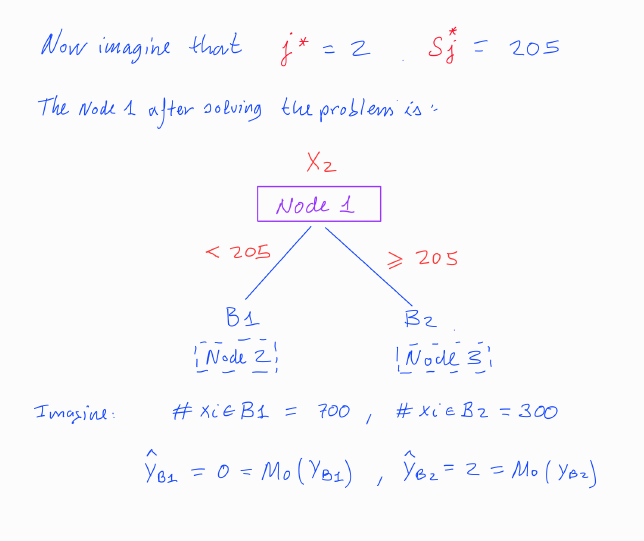 Now imagine that j* = 2 . Sj* = 205
The Node 1 after solving the problem is:
X2
Node 1
< 205 ⩾ 205
B1 B2
Node 2 Node 3
Imagine: # xi ∈ B1 = 700 , # xi ∈ B2 = 300
ŷB1 = 0 = Mo(yB1) , ŷB2 = 2 = Mo(yB2)